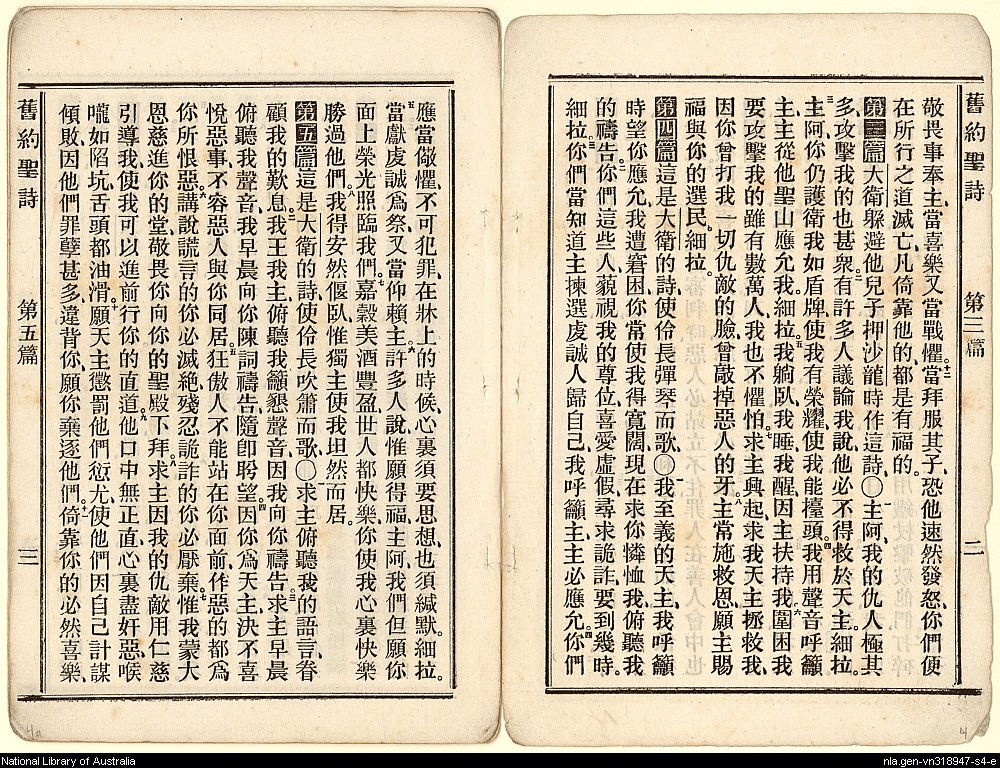 舊約聖詩 第三篇 二
敬畏事奉主、當喜樂又當戰懼。十二當拜服其子、恐他速然發怒、你們便
在所行之道滅亡、凡倚靠他的、都是有福的。
第三篇 大衛躲避他兒子押沙龍時作這詩、〇一主阿、我的仇人極其
多、攻擊我的也甚衆。二有許多人議論我說、他必不得救於天主、細拉。
三主阿、你仍護衛我如盾牌、使我有榮耀、使我能檯頭。四我用聲音呼籲
主、主從他聖山應允我、細拉。五我躺臥我睡、我醒、因主扶持我。六圍困我
要攻擊我的、雖有數萬人、我也不懼怕。七求主興起、求我天主拯救我、
因你曾打我一切仇敵的臉、曾敲掉惡人的牙。八主常施救恩、願主賜
福與你的選民、細拉。
第四篇 這是大衛的詩、使伶長彈琴而歌、〇一我至義的天主、我呼籲
時、望你應允、我遭窘困、你常使我得寬闊、現在求你憐恤我、俯聽我
的禱告。二你們這些人、藐視我的尊位、喜愛虛假、尋求詭詐、要到幾時。
細拉。三你們當知道主揀選虔誠人歸自己、我呼籲主、主必應允。四你們
應當儆懼、不可犯罪、在牀上的時候、心裏須要思想、也須緘默、細拉。
五當獻虔誠爲祭、又當仰賴主。六許多人說、惟願得福、主阿、我們但願你
面上榮光照臨我們。七嘉穀美酒豐盈、世人都快樂、你使我心裏快樂
勝過他們。八我得安然偃臥、惟獨主使我坦然而居。
第五篇 這是大衛的詩、使伶長吹簫而歌、〇一求主俯聽我的語言、眷
顧我的歎息。二我王我主、俯聽我籲懇聲音、因我向你禱告。三求主早晨
俯聽我聲音、我早晨向你陳詞禱告、隨卽盼望。四因你爲天主、決不喜
悅惡事、不容惡人與你同居。五狂傲人不能站在你面前、作惡的都爲
你所恨惡。六講說謊言的、你必滅絶、殘忍詭詐的、你必厭棄。七惟我蒙大
恩慈、進你的堂、敬畏你、向你的聖殿下拜。八求主因我的仇敵、用仁慈
引導我、使我可以進前行你的直道。九他口中無正直、心裏盡奸惡、喉
嚨如陷坑、舌頭都油滑。十願天主懲罰他們愆尤、使他們因自己計謀
傾敗、因他們罪孽甚多、違背你、願你棄逐他們。十一倚靠你的必然喜樂
舊約聖詩 第五篇 三
4a
4
National Library of Australia
nla.gen-vn318947-s4-e